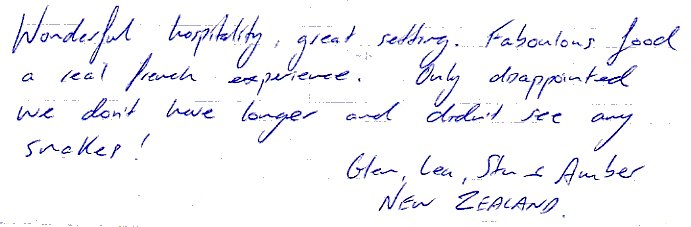 Wonderful hospitality, great setting. Faboulous food
a real french experience. Only disappointed
we don't have longer and didn't see any
snakes!
Glen, Lea, Stu & Amber
NEW ZEALAND.